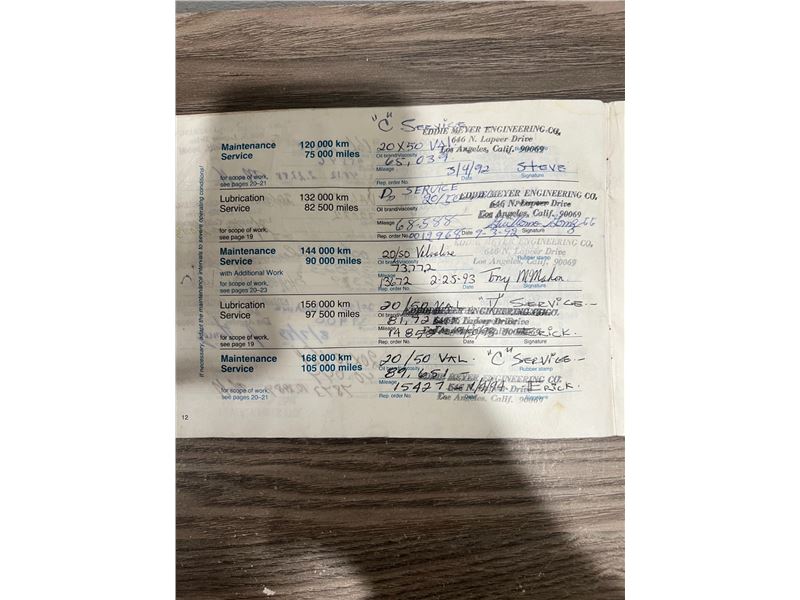 "C" SERVICE
EDDIE MEYER ENGINEERING CO.
646 N. Lapeer Drive
Los Angeles, Calif. 90069
Maintenance 120 000 km 20X50 VAL
Service 75 000 miles Oil brand/viscosity
65,039
Mileage 3/4/92 STEVE
for scope of work, Date Signature
see pages 20–21 Rep. order No.
D SERVICE
Lubrication 132 000 km 20/50
Service 82 500 miles Oil brand/viscosity
EDDIE MEYER ENGINEERING CO.
646 N. Lapeer Drive
Los Angeles, Calif. 90069
Mileage 68588
for scope of work, Rep. order No. Date Signature
see page 19
EDDIE MEYER ENGINEERING CO.
646 N. Lapeer Drive
Los Angeles, Calif. 90069
Maintenance 144 000 km 20/50 Valvoline
Service 90 000 miles Oil brand/viscosity Rubber stamp
with Additional Work 73772
Mileage
for scope of work, 13672 2-25-93 Tony McMahon
see pages 20–23 Rep. order No. Date Signature
Lubrication 156 000 km 20/50 VAL "D" SERVICE
Service 97 500 miles
Mileage
for scope of work, ERICK.
see page 19 Rep. order No. Date Signature
Maintenance 168 000 km 20/50 VAL. "C" SERVICE
Service 105 000 miles Oil brand/viscosity Rubber stamp
89,651
Mileage EDDIE MEYER ENGINEERING CO.
15427 ERICK.
for scope of work, Rep. order No.
see pages 20–21 Los Angeles, Calif. 90069
If necessary, adapt the maintenance intervals to severe operating conditions!
12